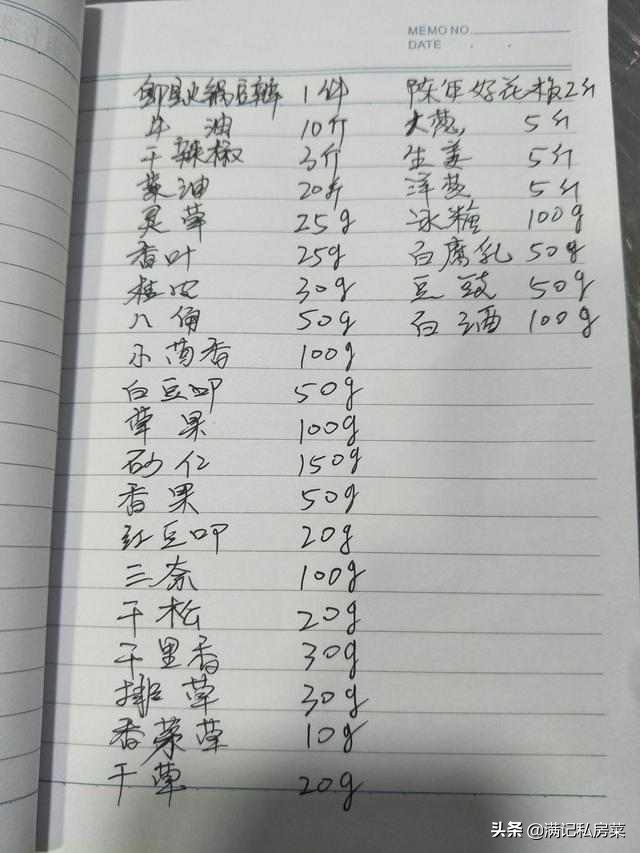 MEMO NO.
DATE
郫县火锅豆瓣 1件
牛油 10斤
干辣椒 3斤
菜油 20斤
灵草 25g
香叶 25g
桂皮 30g
八角 50g
小茴香 100g
白豆叩 50g
草果 100g
砂仁 150g
香果 50g
红豆叩 20g
三奈 100g
干松 20g
千里香 30g
排草 30g
香茅草 10g
干草 20g
陈年好花椒2斤
大葱, 5斤
生姜 5斤
洋葱 5斤
冰糖 100g
白腐乳 50g
豆豉 50g
白酒 100g
头条 @满记私房菜